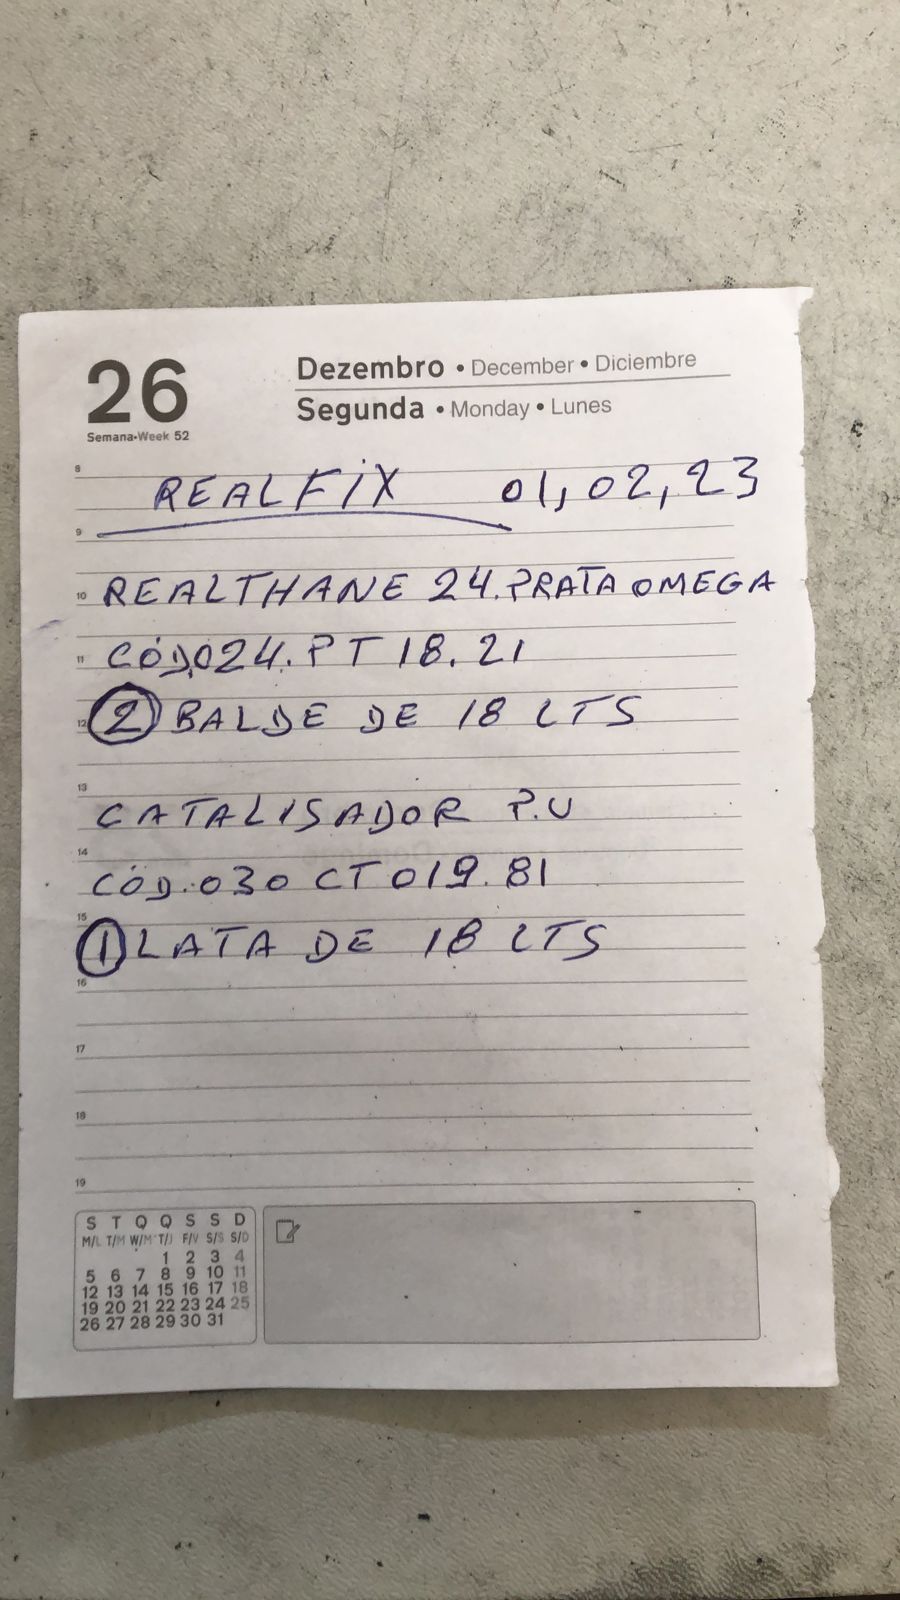 26
Semana•Week 52
Dezembro • December • Diciembre
Segunda • Monday • Lunes
8
REALFiX 01,02,23
9
10 REALTHANE 24.PRATA OMEGA
11 CÓD024.PT 18.21
12 2 BALDE DE 18 LTS
13
CATALISADOR P.U
14
CÓD.030 CT019.81
15
1 LATA DE 18 LTS
16
17
18
19
S T Q Q S S D
M/L T/M W/M T/J F/V S/S S/D
1 2 3 4
5 6 7 8 9 10 11
12 13 14 15 16 17 18
19 20 21 22 23 24 25
26 27 28 29 30 31